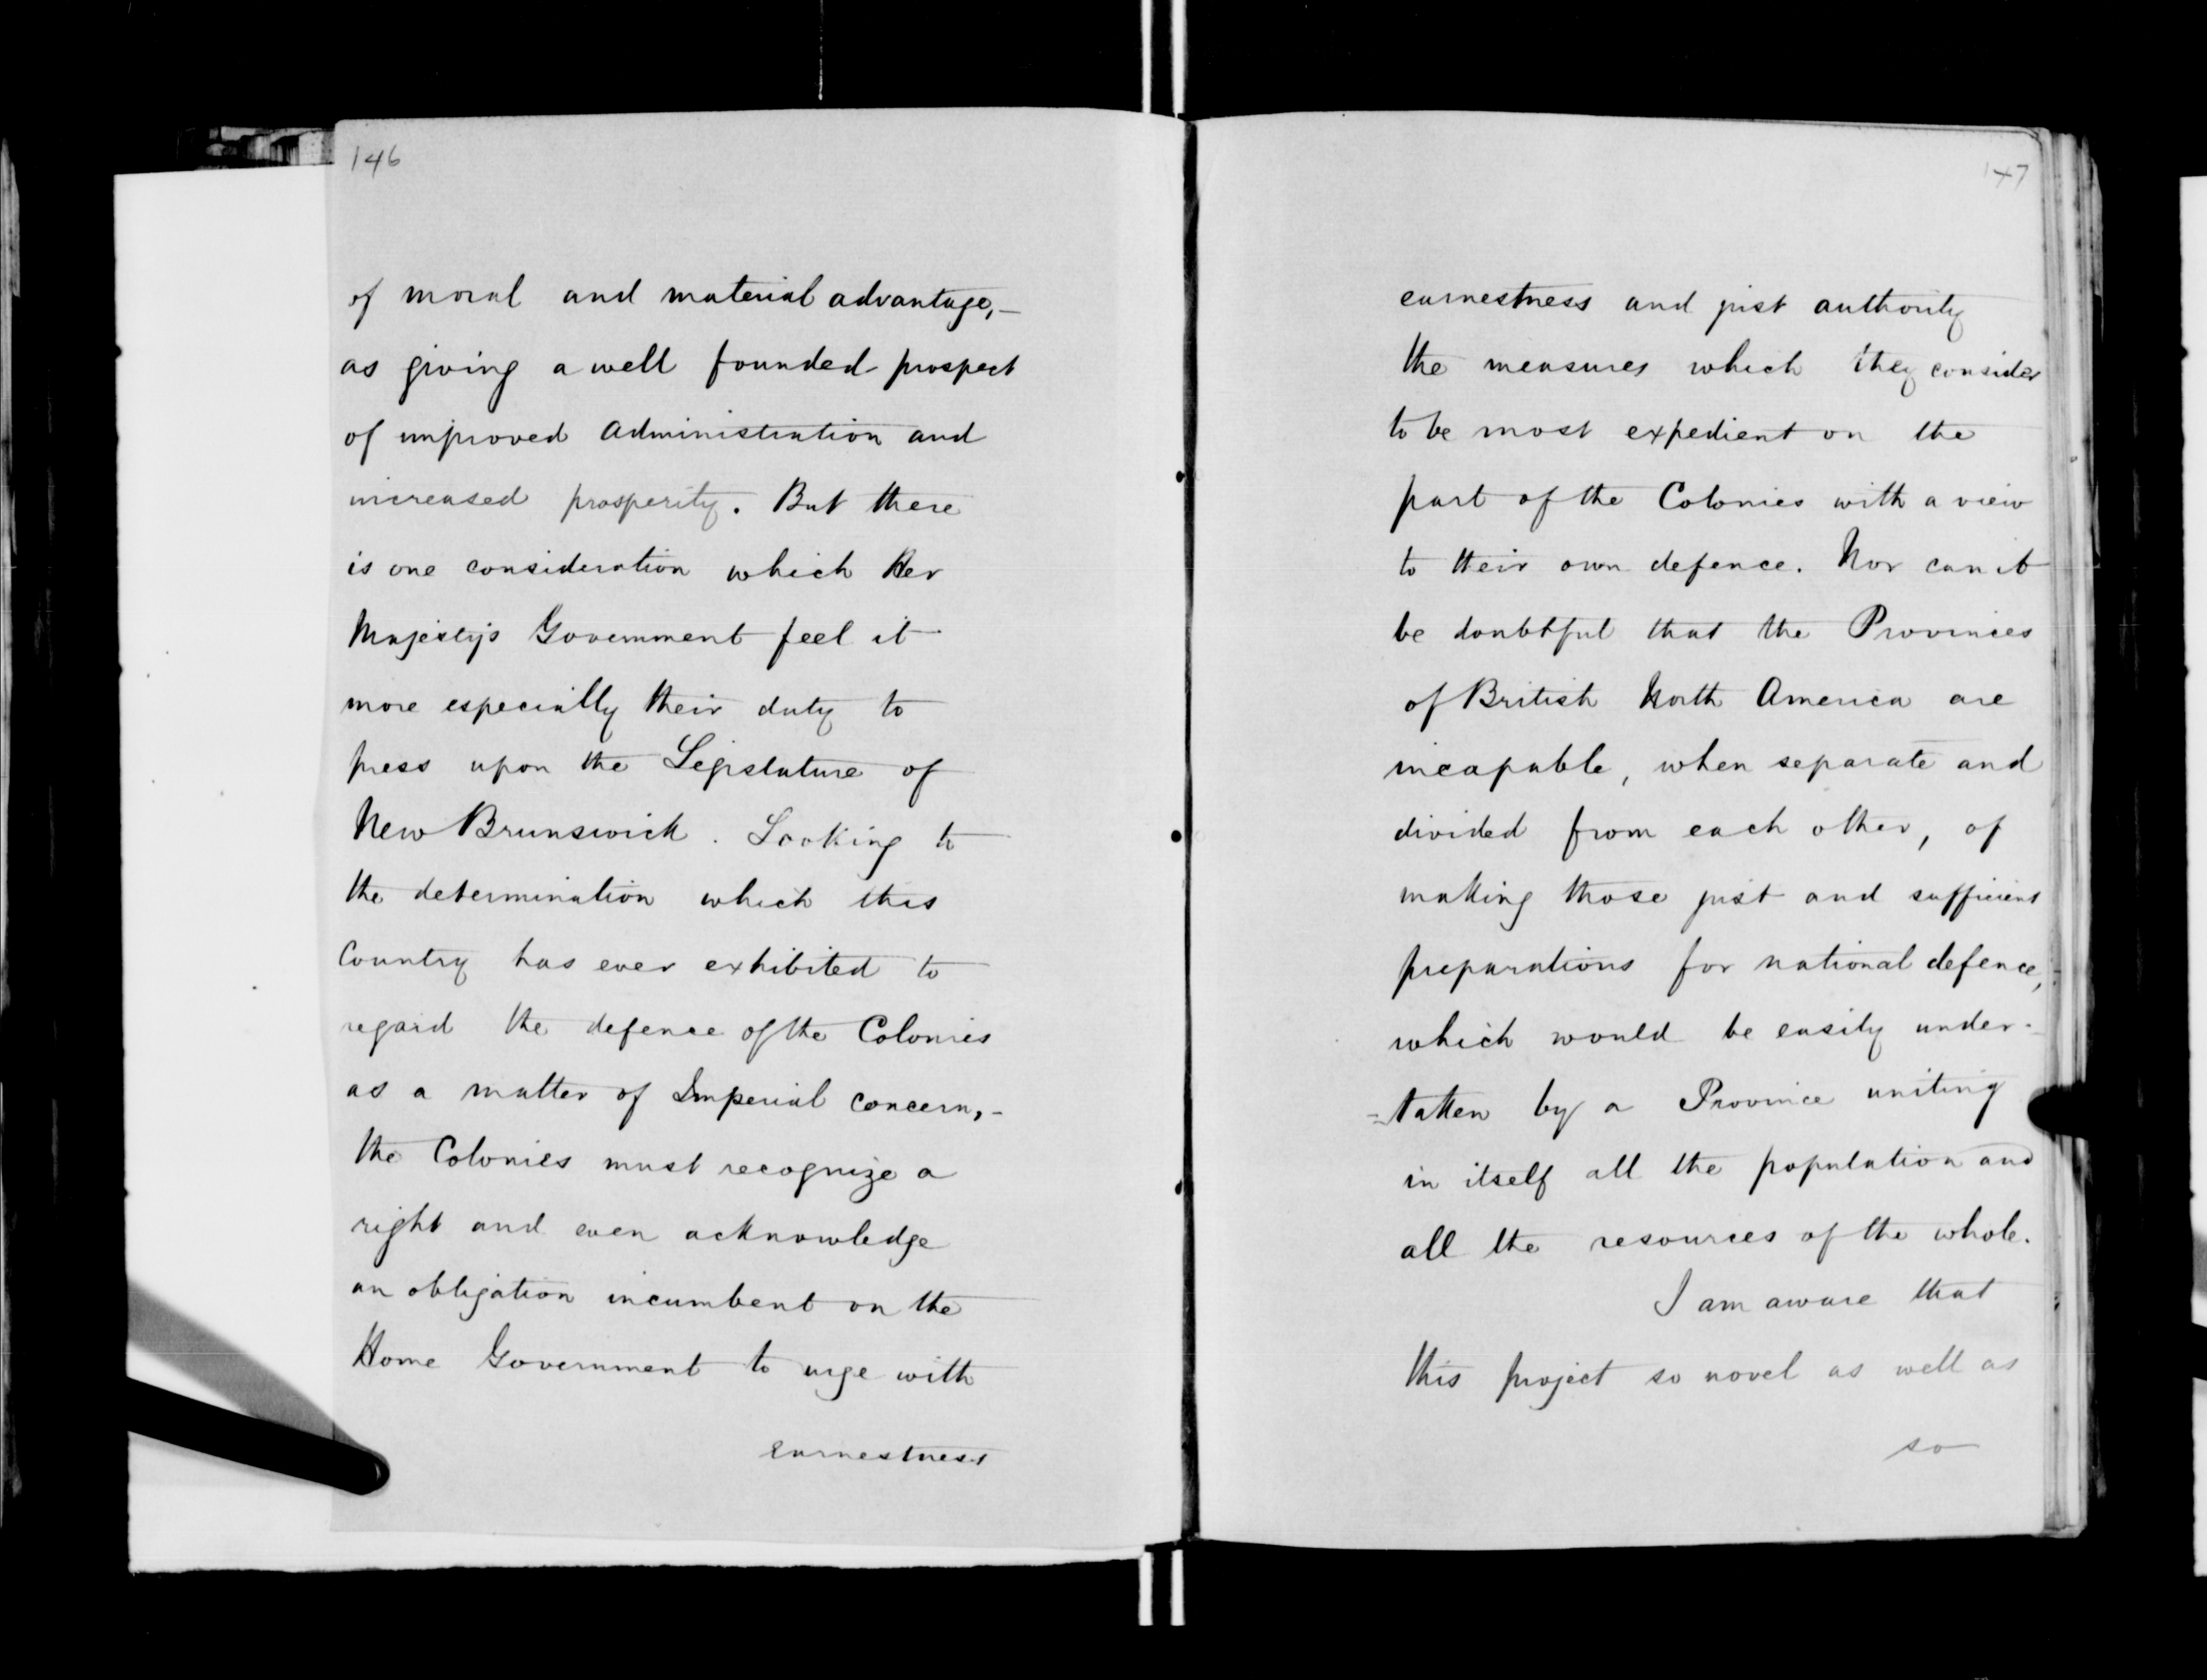 146
of moral and material advantage,—
as giving a well founded prospect
of improved Administration and
increased prosperity. But there
is one consideration which Her
Majesty's Government feel it
more especially their duty to
press upon the Legislature of
New Brunswick. Looking to
the determination which this
Country has ever exhibited to
regard the defence of the Colonies
as a matter of Imperial concern,—
the Colonies must recognize a
right and even acknowledge
an obligation incumbent on the
Home Government to urge with
earnestness
147
earnestness and just authority
the measures which they consider
to be most expedient on the
part of the Colonies with a view
to their own defence. Nor can it
be doubtful that the Provinces
of British North America are
incapable, when separate and
divided from each other, of
making those just and sufficient
preparations for national defence,
which would be easily under-
=taken by a Province uniting
in itself all the population and
all the resources of the whole.
I am aware that
this project so novel as well as
so